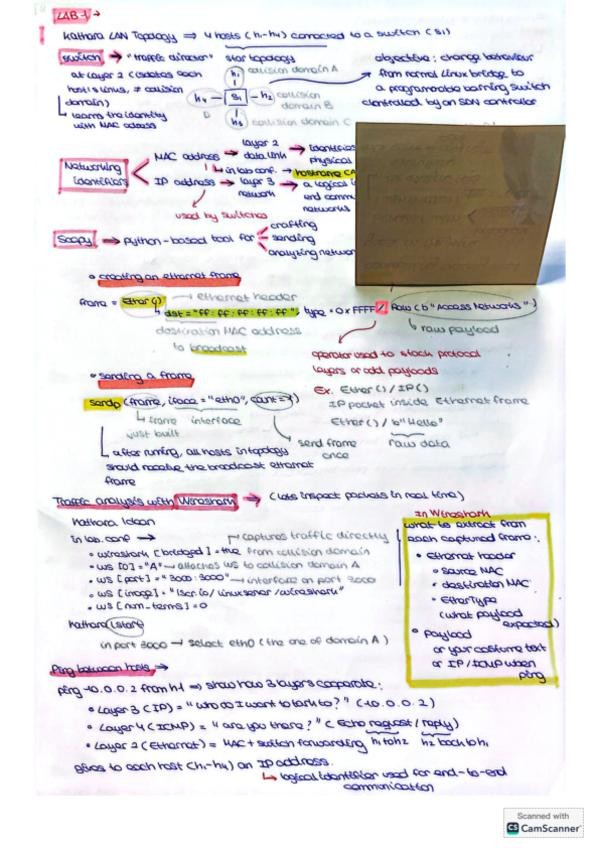 LAB 1 →
Kathara LAN Topology ⇒ 4 hosts (h1-h4) connected to a switch (S1)
switch → "traffic director" star topology
at layer 2 (isolates each
host's links, ≠ collision
domain)
→ learns the identity
with MAC address
h1 collision domain A
h4 S1 h2 collision
domain B
D
h3 collision domain C
objective: change behaviour
from normal Linux bridge to
a programable learning switch
controlled by an SDN controller
Networking
identifiers
MAC address → layer 2 data link → identifies
physical
↳ in lab.conf. → hostname
IP address → layer 3 network → a logical
end comm
networks
used by switches
Scapy → python-based tool for
crafting
sending
analyzing networ
• creating an ethernet frame
frame = Ether() → ethernet header
dst = "ff:ff:ff:ff:ff:ff", type = 0xFFFF / Raw (b "Access Networks")
destination MAC address
to broadcast
raw payload
operator used to stack protocol
layers or add payloads
Ex. Ether() / IP()
IP packet inside Ethernet frame
Ether() / b"Hello"
raw data
• sending a frame
sendp (frame, iface = "eth0", count=1)
↳ frame interface
just built
send frame
once
↳ after running, all hosts in topology
should receive the broadcast ethernet
frame
Traffic analysis with Wireshark → (lets inspect packets in real time)
Kathara lclean
in lab.conf →
• wireshark [bridged] = true
captures traffic directly
from collision domain
• WS [0] = "A" → attaches WS to collision domain A
• WS [port] = "3000:3000" → interface on port 3000
• WS [image] = "lscr.io/linuxserver/wireshark"
• WS [num_terms] = 0
Kathara lstart
in port 3000 → select eth0 (the one of domain A)
In Wireshark
what to extract from
each captured frame:
• Ethernet header
• source MAC
• destination MAC
• EtherType
(what payload
expected)
• Payload
or your custome text
or IP/ICMP when
ping
Ping between hosts →
ping 10.0.0.2 from h1 ⇒ show how 3 layers cooperate:
• Layer 3 (IP) = "who do I want to talk to?" (10.0.0.2)
• Layer 4 (ICMP) = "are you there?" (Echo request / reply)
• Layer 2 (Ethernet) = MAC + switch forwarding h1 to h2 h2 back to h1
gives to each host (h1-h4) an IP address.
↳ logical identifier used for end-to-end
communication
Scanned with
CS CamScanner